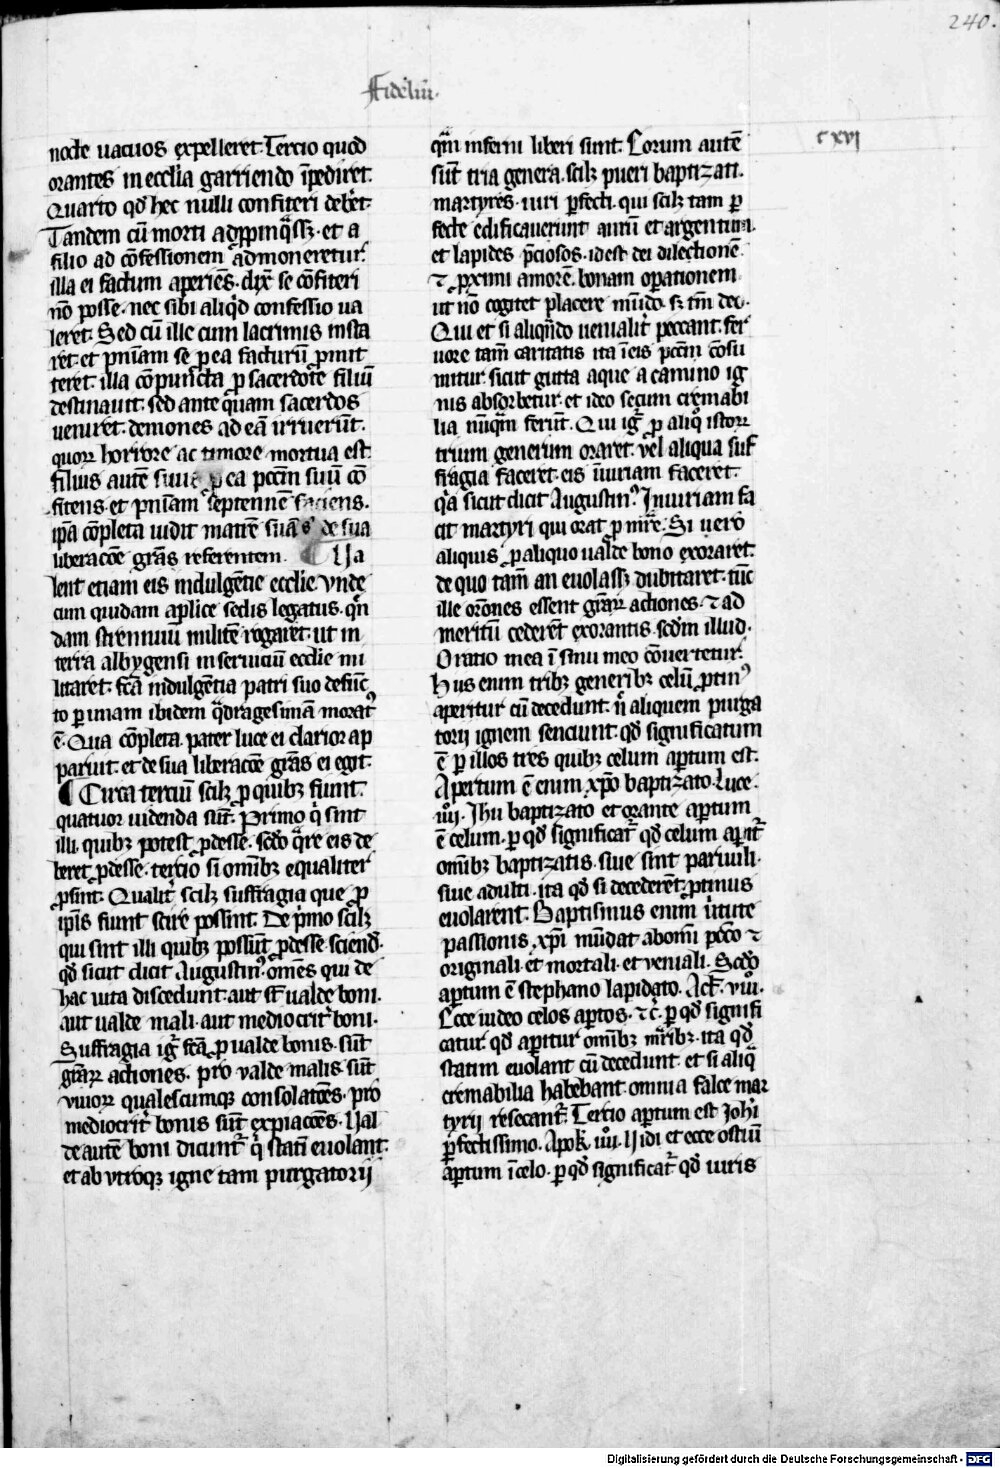 240.
Fideliū.
cxvi
nocte uacuos expelleret. Tercio quod
orantes in ecclīa garriendo īpediret.
Quarto qd̄ hec nulli confiteri debet.
Tandem cū morti appinq̄ss; et a
filio ad cōfessionem admoneretur.
illa ei factum aperiēs. dix̄ se cōfiteri
nō posse. nec sibi aliq̇d confessio ua
leret. Sed cū ille cum lacrimis insta
ret. et pn̄iam se ꝓ ea facturū ꝓmit
teret. illa cōpuncta ꝓ sacerdote filiū
destinauit. sed ante quam sacerdos
ueniret. demones ad eā irruerūt.
quoꝝ horrore ac timore mortua est
filius autē suus ꝓ ea pctm̄ suū cō
fitens. et pn̄iam septennē faciens.
ip̄a cōpleta uidit matrē suā de sua
liberacōe gr̄as referentem. Ua
lent etiam eis indulgētie ecclīe. vnde
cum quidam ap̄lice sedis legatus. qn̄
dam strennuū militē rogaret. ut in
terra albygensi in seruiciū ecclīe mi
litaret. fc̄a indulgētia patri suo defūc
to ꝑ unam ibidem q̄dragesimā moratꝰ
ē. Qua cōpleta. pater luce ei clarior ap
paruit. et de sua liberacōe gr̄as ei egit.
¶ Circa terciū scilꝫ ꝓ quibꝫ fiunt.
quatuor uidenda sūt. Primo q̇ sint
illi. quibꝫ potest ꝓdesse. scd̄o q̄re eis de
beret ꝓdesse. tercio si omībꝫ equaliter
ꝓsint. Qualit̄ scilꝫ suffragia que ꝓ
ip̄is fiunt scire possint. De ṗmo scilꝫ
qui sint illi quibꝫ possūt ꝓdesse. sciend̄.
qd̄ sicut dicit Augustinꝰ. omēs qui de
hac uita discedunt. aut st̄ ualde boni.
aut ualde mali. aut mediocrit̄ boni.
Suffragia iḡ fc̄a ꝓ ualde bonis. sūt
gr̄aꝝ actiones. pro valde malis. sūt
viuoꝝ qualescumqꝫ consolatōes. pro
mediocrit̄ bonis sūt expiacōes. Ual
de autē boni dicunt̄ q̇ statī euolant.
et ab vtroqꝫ igne tam purgatorij
qm̄ inferni liberi sunt. Eorum autē
sūt tria genera. scilꝫ pueri baptizati.
martyres. uiri ꝑfecti. qui scilꝫ tam ꝑ
fecte edificauerunt aurū et argentum.
et lapides p̄ciosos. id est dei dilectionē
⁊ ꝓximi amorē. bonam oꝑationem
ut nō cogitet placere mūdo. s; tm̄ deo.
Qui et si aliqn̄do uenialit̄ peccant. fer
uore tam̄ caritatis ita ī eis pctm̄ cōsu
mitur. sicut gutta aque a camino ig
nis absorbetur. et ideo secum cremabi
lia nūq̄m ferūt. Qui iḡ ꝓ aliq̊ istoꝝ
trium generum oraret. vel aliqua suf
fragia faceret. eis īiuriam faceret.
q̇a sicut dicit Augustinꝰ. Iniuriam fa
cit martyri qui orat ꝓ mr̄e. Si uero
aliquis ꝓ aliquo ualde bono exoraret.
de quo tam̄ an euolass; dubitaret. tūc
ille or̄ones essent gr̄aꝝ actiones. ⁊ ad
meritū cederēt exorantis. scd̄m illud.
Oratio mea ī sinu meo cōuertetur.
Hus enim tribꝫ generibꝫ celū ꝓtinꝰ
aperitur cū decedunt. n̄ aliquem purga
torij ignem senciunt. qd̄ significatum
ē ꝑ illos tres quibꝫ celum aꝑtum est.
Apertum ē enim xp̄o baptizato. Luce.
iiij. Ihu baptizato et orante aꝑtum
ē celum. ꝑ qd̄ significat̄ qd̄ celum aꝑit̄
omībꝫ baptizatis. siue sint paruuli.
siue adulti. ita qd̄ si decederēt. ꝓtinus
euolarent. Baptismus enim ūtute
passionis xp̄i mūdat ab om̄i pccō ⁊
originali. et mortali. et veniali. Scd̄o
aꝑtum ē stephano lapidato. Act̄. viij.
Ecce uideo celos aꝑtos. ⁊c̄. ꝑ qd̄ signifi
catur. qd̄ aꝑitur omībꝫ mr̄ibꝫ. ita qd̄
statim euolant cū decedunt. et si aliq̄
cremabilia habebant. omnia falce mar
tyrij resecant̄. Tercio aꝑtum est Joh̄i
ꝑfectissimo. Apok̄. iiij. Uidi et ecce ostiū
aꝑtum ī celo. ꝑ qd̄ significat̄ qd̄ uiris
Digitalisierung gefördert durch die Deutsche Forschungsgemeinschaft - DFG